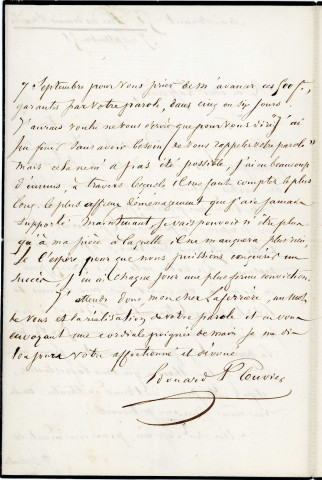 7 Septembre pour vous prier de m'avancer ces 600 f.
garantis par votre parole, dans cinq ou six jours.
J'aurais voulu ne vous écrire que pour vous dire "J'ai
fini sans avoir besoin de vous rappeler votre parole"
mais cela ne m'a pas été possible, j'ai eu beaucoup
d'ennuis, à travers lesquels il me faut compter le plus
long, le plus affreux déménagement que j'aie jamais
supporté. Maintenant, je vais pouvoir n'être plus
qu'à ma pièce à laquelle il ne manquera plus rien
je l'espère pour que nous puissions conquérir un
succès. J'en ai chaque jour une plus ferme conviction.
J'attends donc mon cher Laferrière, un mot
de vous et la réalisation de votre parole et en vous
envoyant une cordiale poignée de main je me dis
toujours votre affectionné et dévoué
Edouard Plouvier